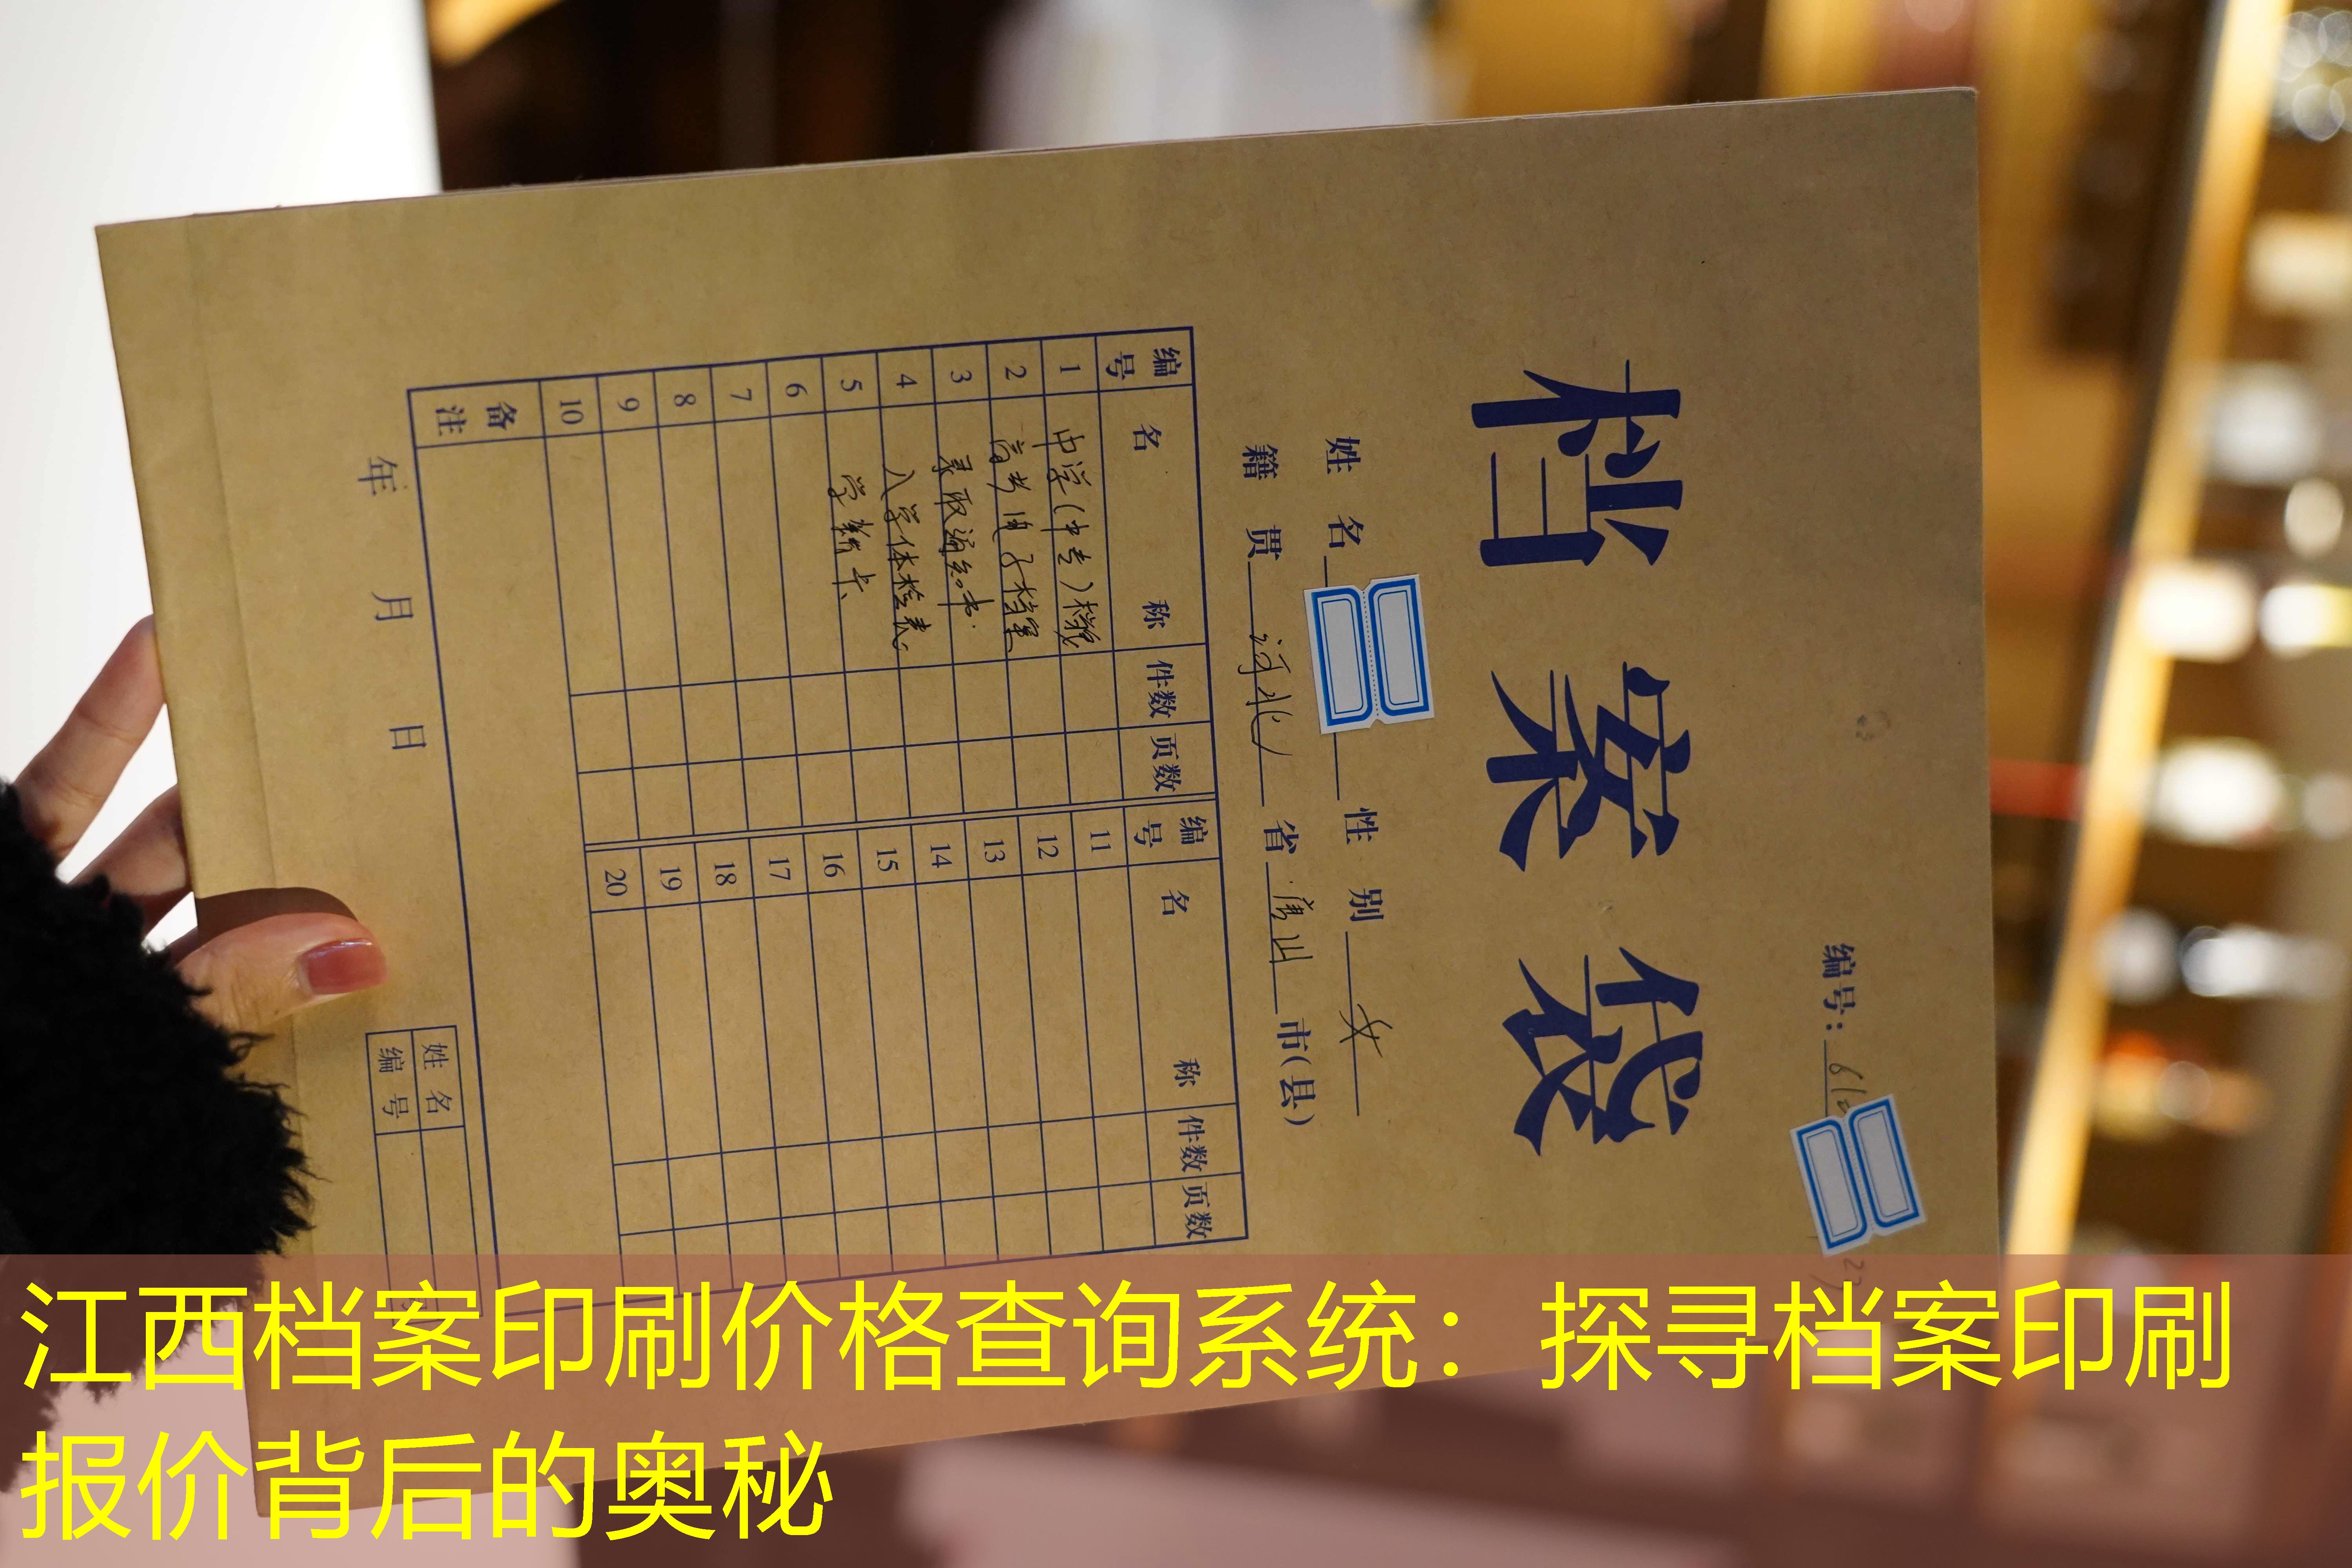 编号：
档案袋
姓名 性别 女
籍贯 河北 省 唐山 市(县)
编号 名称 件数 页数 编号 名称 件数 页数
1 中学(中专)档案 11
2 高考电子档案 12
3 录取通知书 13
4 入学体检表 14
5 学籍卡 15
6 16
7 17
8 18
9 19
10 20
备注
年 月 日
姓名
编号
江西档案印刷价格查询系统：探寻档案印刷
报价背后的奥秘